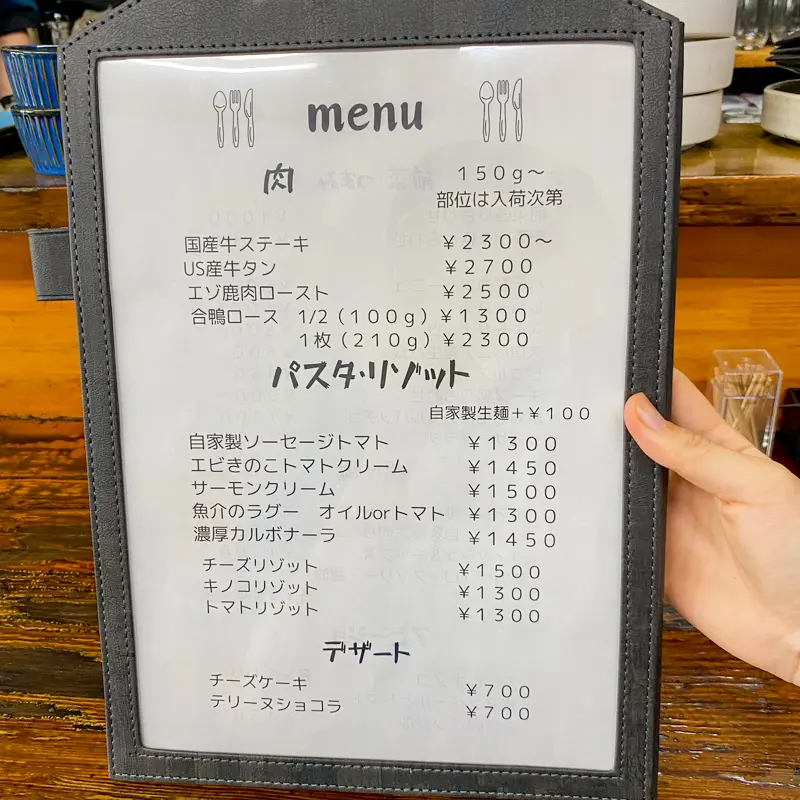 menu
肉 150g～
部位は入荷次第
国産牛ステーキ ¥2300～
US産牛タン ¥2700
エゾ鹿肉ロースト ¥2500
合鴨ロース 1/2（100g）¥1300
1枚（210g）¥2300
パスタ・リゾット
自家製生麺+¥100
自家製ソーセージトマト ¥1300
エビきのこトマトクリーム ¥1450
サーモンクリーム ¥1500
魚介のラグー オイルorトマト ¥1300
濃厚カルボナーラ ¥1450
チーズリゾット ¥1500
キノコリゾット ¥1300
トマトリゾット ¥1300
デザート
チーズケーキ ¥700
テリーヌショコラ ¥700